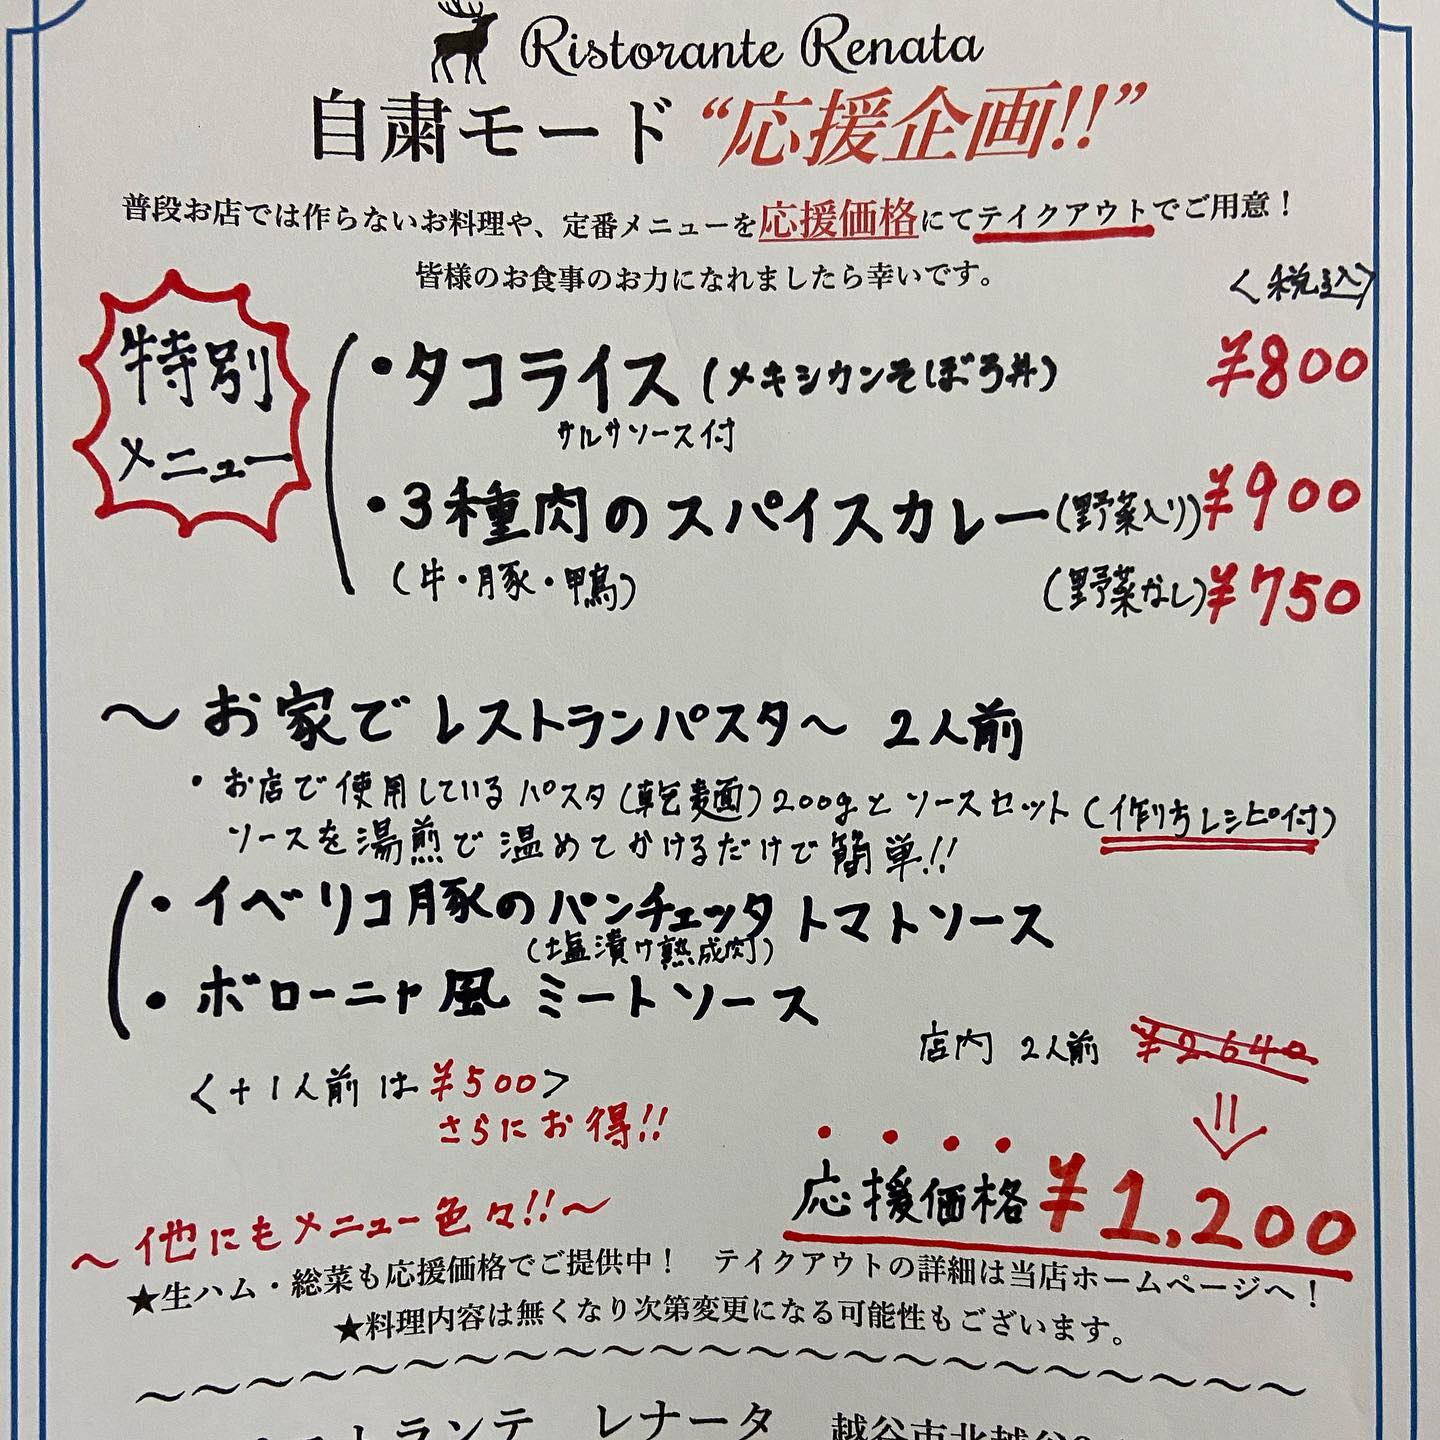 Ristorante Renata
自粛モード “応援企画!!”
普段お店では作らないお料理や、定番メニューを応援価格にてテイクアウトでご用意！
皆様のお食事のお力になれましたら幸いです。
<税込>
特別
メニュー
・タコライス(メキシカンそぼろ丼) ¥800
サルサソース付
・3種肉のスパイスカレー(野菜入り)¥900
(牛・豚・鴨) (野菜なし)¥750
～お家でレストランパスタ～ 2人前
・お店で使用しているパスタ(乾麺)200gとソースセット(作り方レシピ付)
ソースを湯煎で温めてかけるだけで簡単!!
・イベリコ豚のパンチェッタトマトソース
(塩漬け熟成肉)
・ボローニャ風ミートソース
店内 2人前 ¥2.640
<+1人前は¥500>
さらにお得!!
応援価格¥1,200
～他にもメニュー色々!!～
★生ハム・総菜も応援価格でご提供中！ テイクアウトの詳細は当店ホームページへ！
★料理内容は無くなり次第変更になる可能性もございます。
～～～～～～～～～～～～～～～～～～～～～
ストランテ レナータ 越谷市北越谷